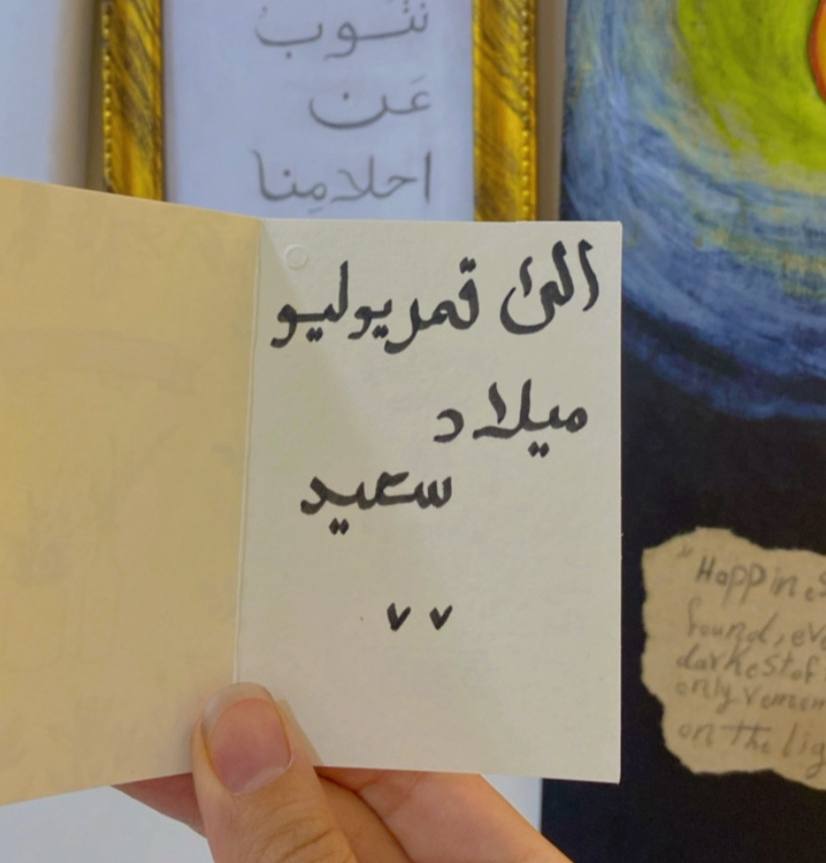 نتُوبُ
عَن
احلامِنا
الئ قمر يوليو
ميلاد
سعيد
٧ ٧
"Happines
found, eve
darkest of
only remem
on the lig